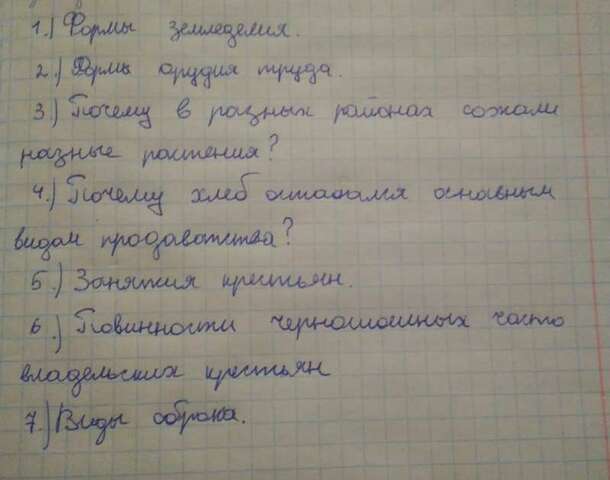 1.) Формы земледелия.
2.) Формы орудия труда.
3.) Почему в разных районах сожали
разные растения?
4.) Почему хлеб оставался основным
видом продоватства?
5.) Занятия крестьян.
6.) Повинности черносошных часто
владельских крестьян
7.) Виды оброка.